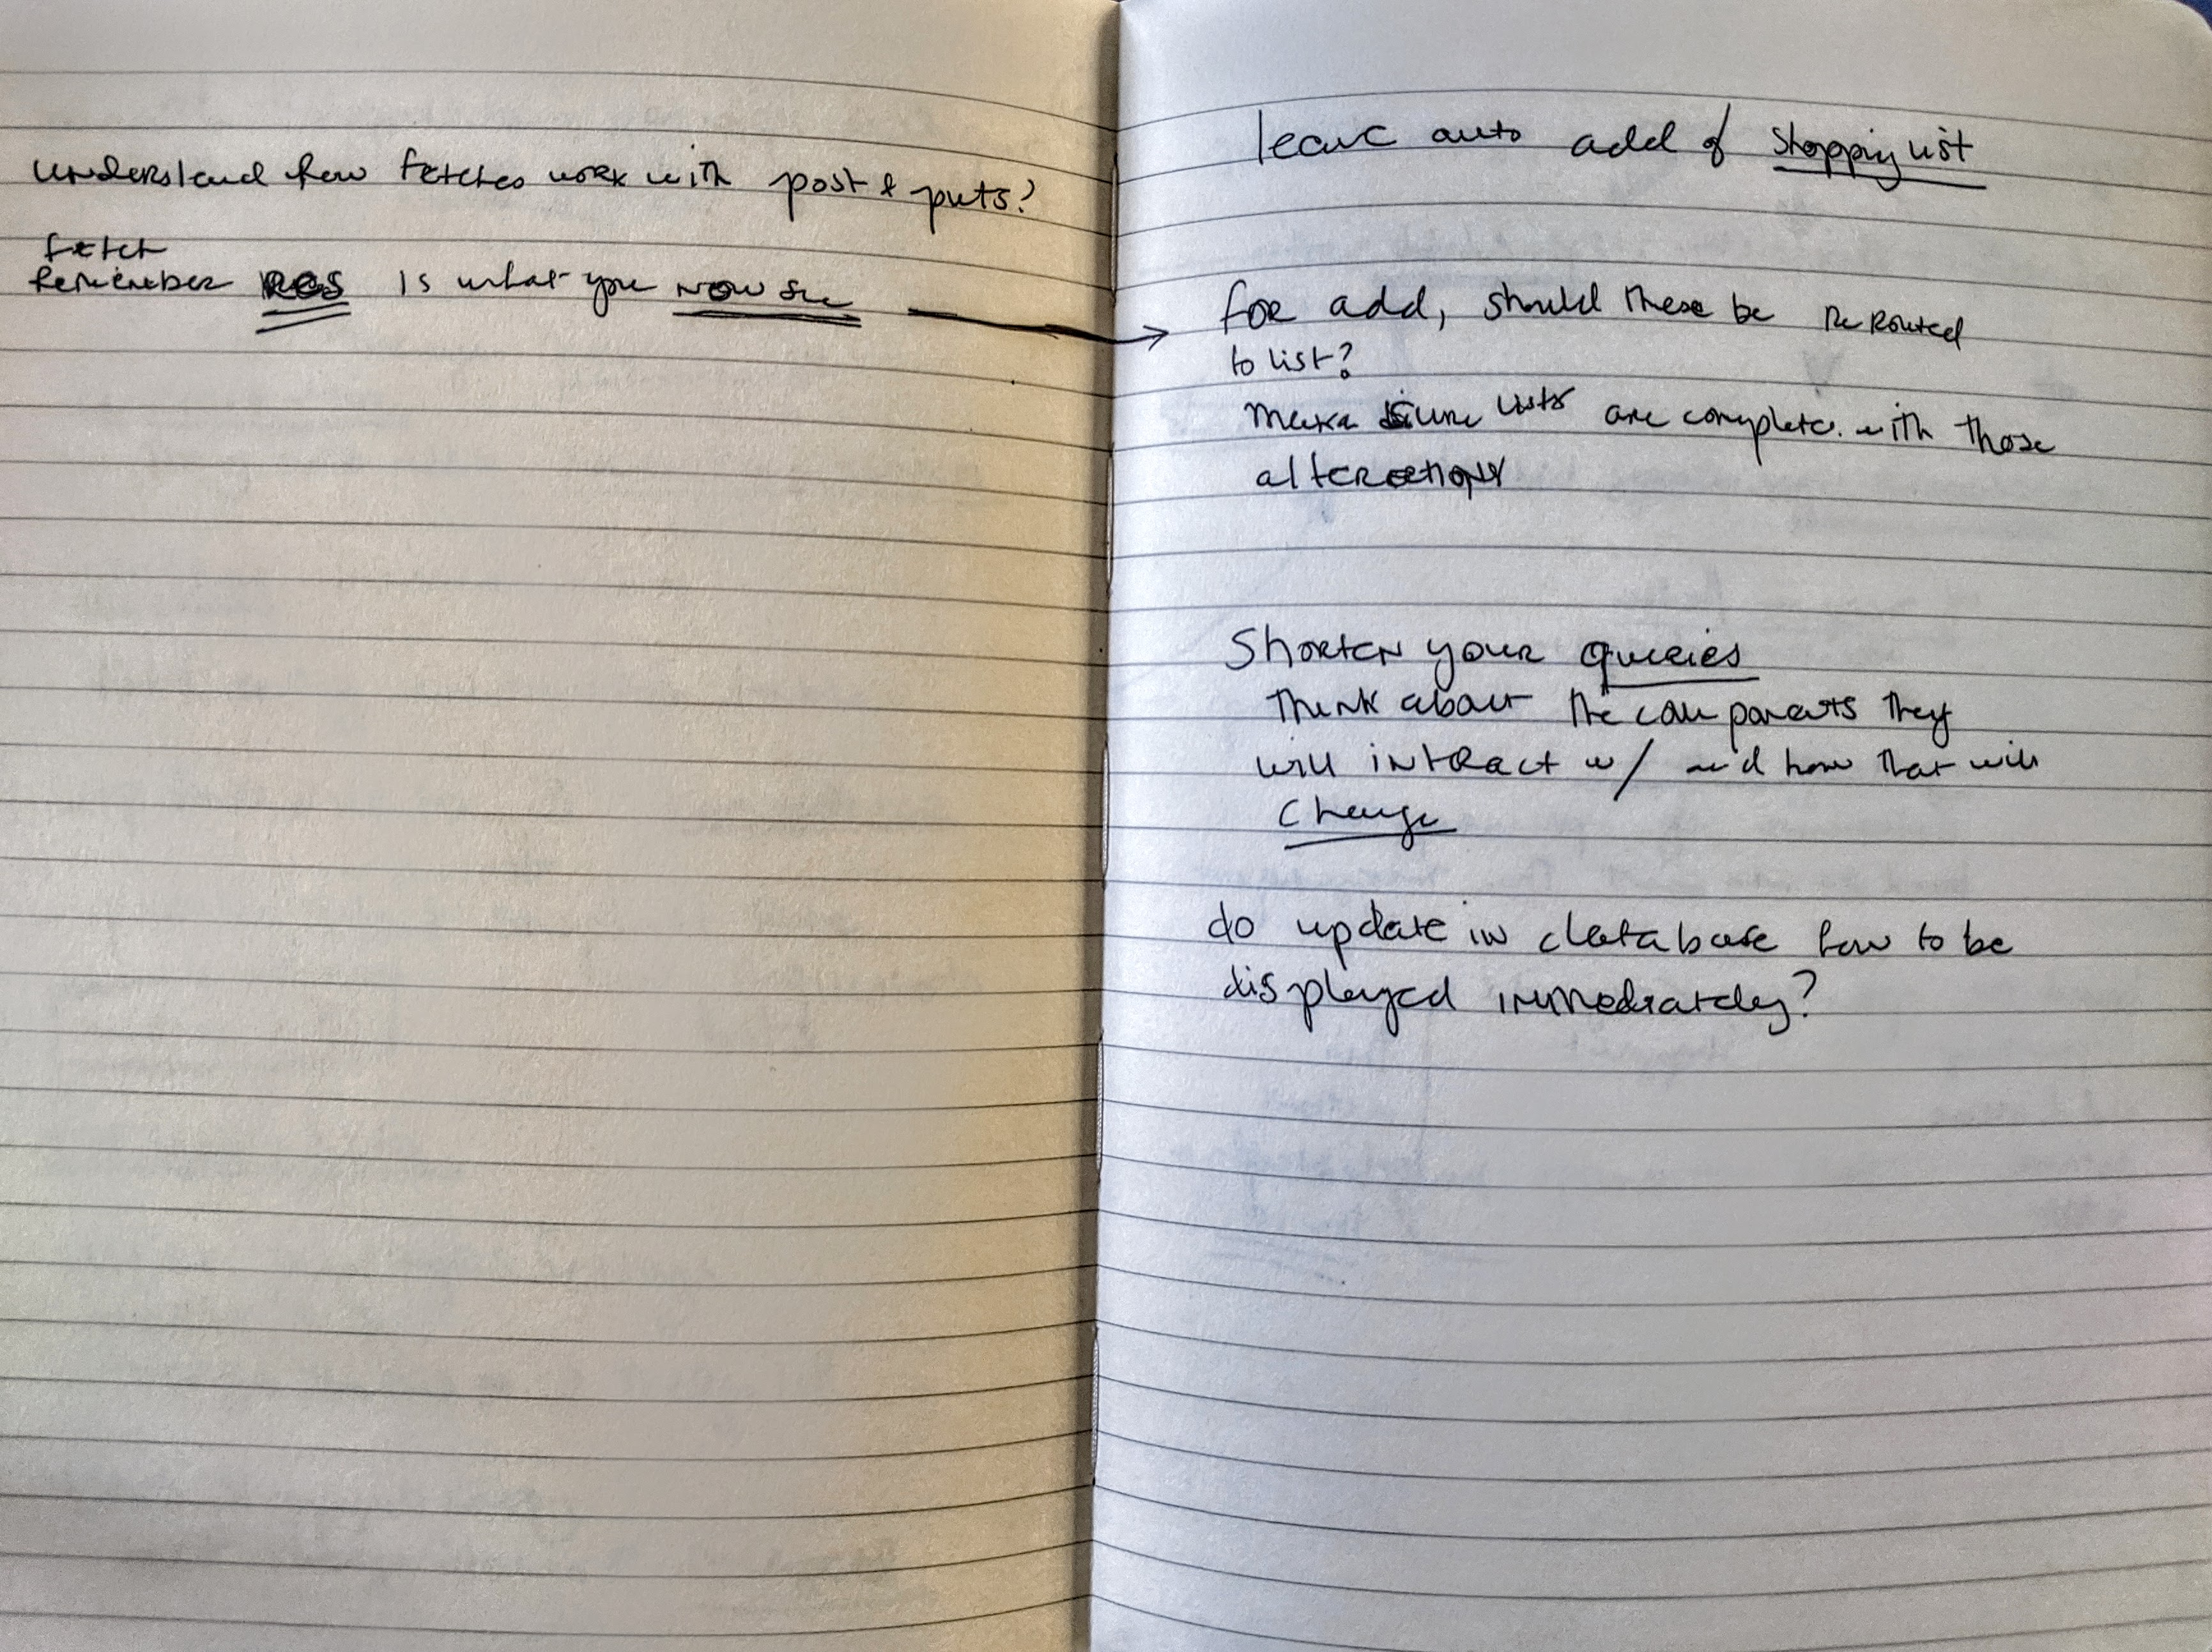 understand how fetches work with post & puts?
fetch
Remember RES is what you now see
leave auto add of shopping list
for add, should these be ReRouted
to list?
Make sure lists are complete with those
alterations
Shorten your queries
Think about the components they
will intract w/ and how that will
change
do update in database how to be
displayed immediately?